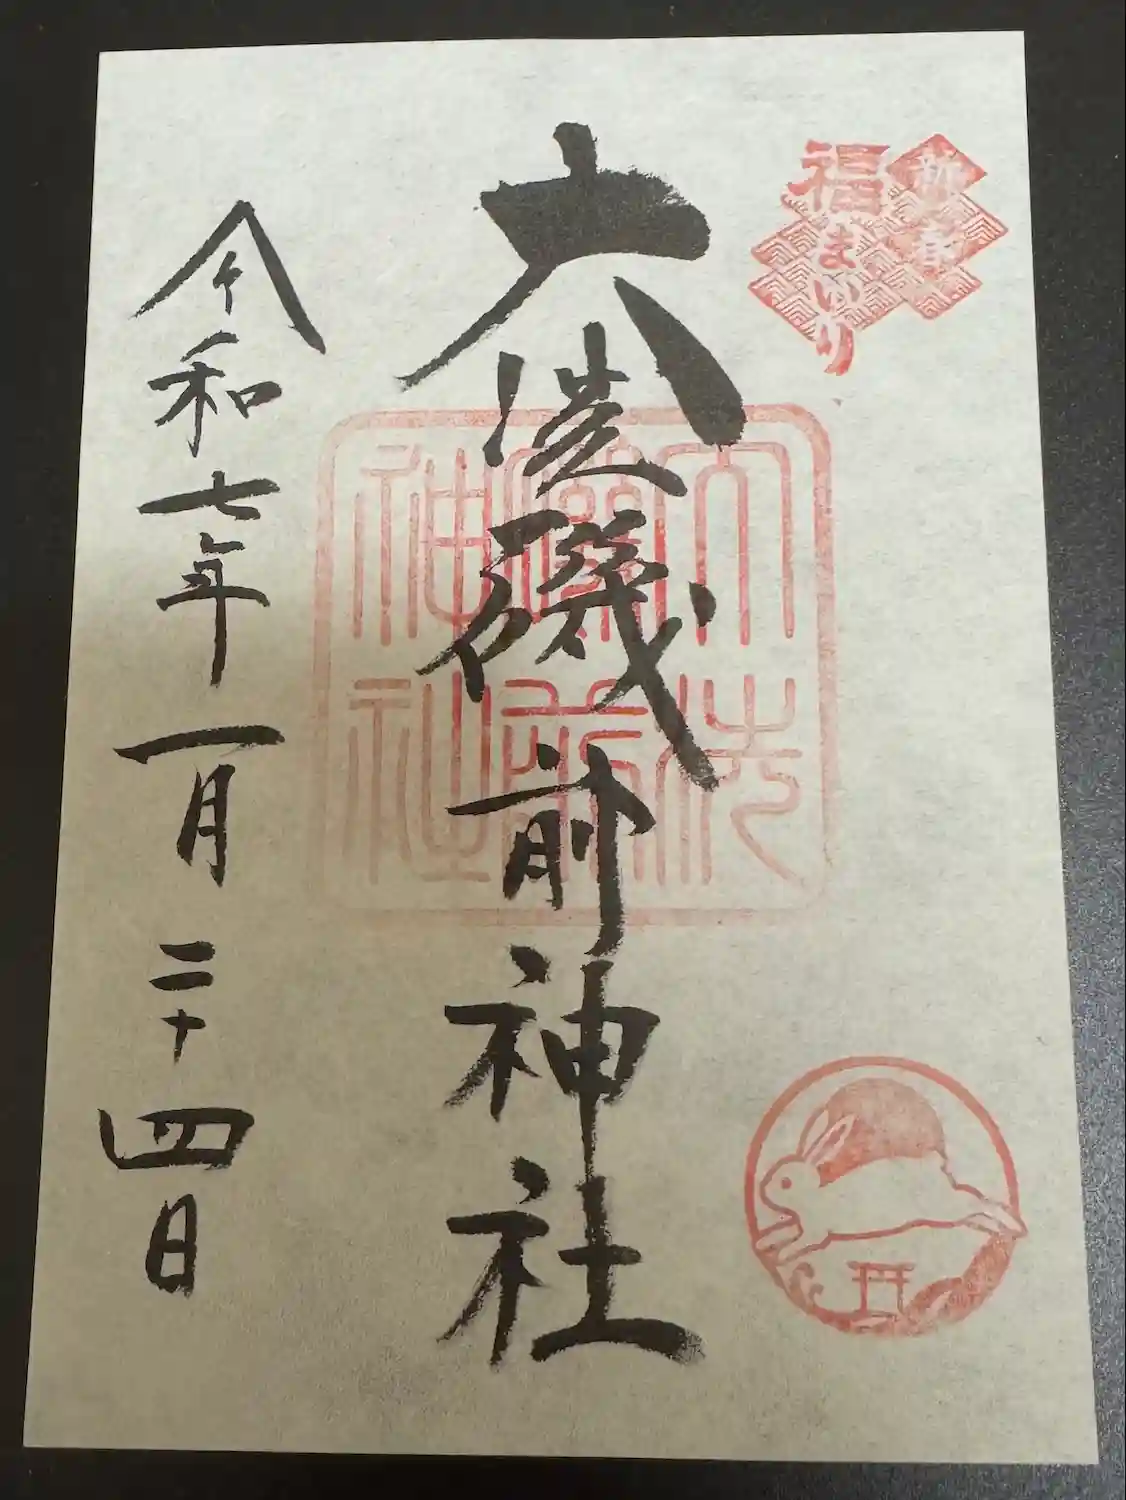 新春
福まいり
大洗磯前神社
大洗
磯前
神社
令和七年一月二十四日